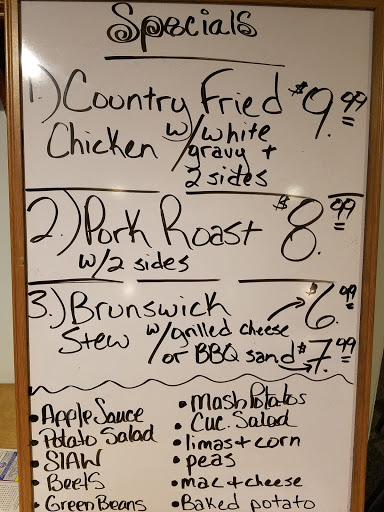 Specials
1.) Country Fried $9.99
Chicken w/white
gravy +
2 sides
2.) Pork Roast $8.99
w/2 sides
3.) Brunswick $6.99
Stew w/grilled cheese
or BBQ sand $7.99
• Apple Sauce
• Potato Salad
• SlAW
• Beets
• Green Beans
• Mash Potatos
• Cuc. Salad
• limas + corn
• peas
• mac + cheese
• Baked potato